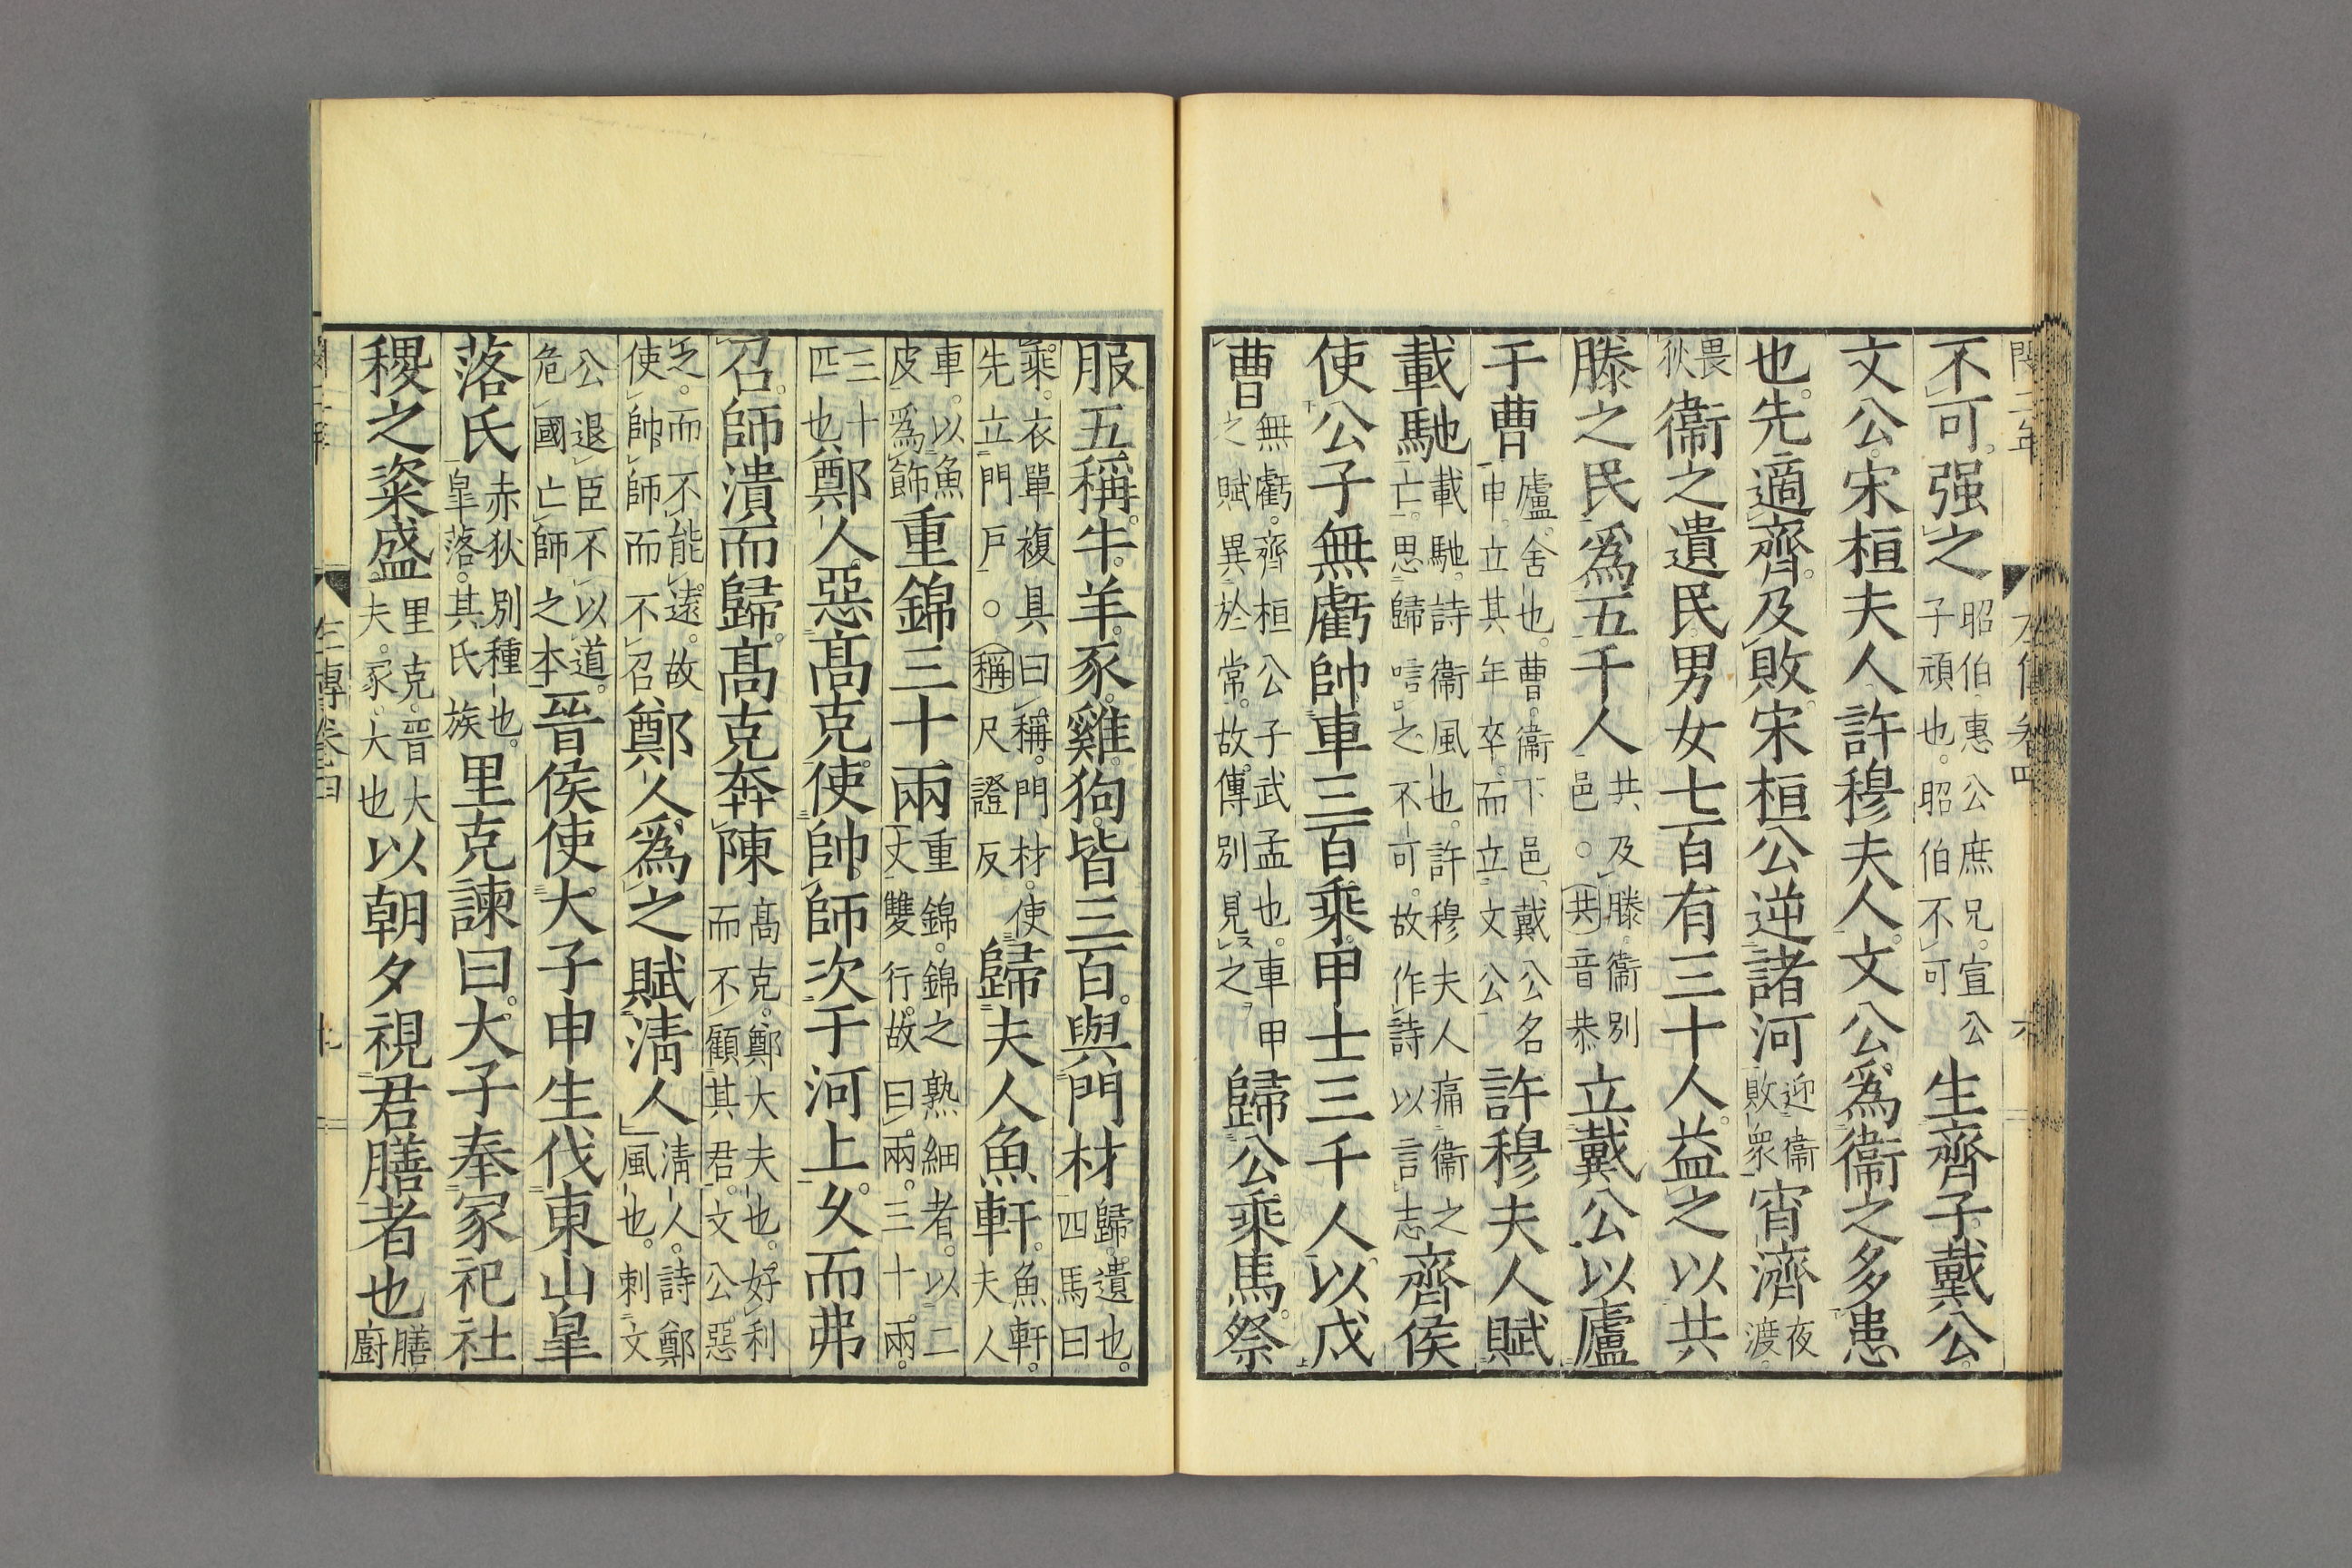 不可强之昭伯惠公庶兄宣公子頑也昭伯不可生齊子戴公
文公宋桓夫人許穆夫人文公爲衞之多患
也先適齊及敗宋桓公逆諸河迎衞敗衆宵濟夜渡
畏狄衞之遺民男女七百有三十人益之以共
滕之民爲五千人共及滕衞別邑○共音恭立戴公以廬
于曹廬舍也曹衞下邑戴公名申立其年卒而立文公許穆夫人賦
載馳載馳詩衞風也許穆夫人痛衞之亡思歸唁之不可故作詩以言志齊侯
使公子無虧帥車三百乘甲士三千人以戍
曹無虧齊桓公子武孟也車甲之賦異於常故傳別見之歸公乘馬祭
服五稱牛羊豕雞狗皆三百與門材歸遺也四馬曰
乘衣單複具曰稱門材使先立門戶○稱尺證反歸夫人魚軒魚軒夫人
車以魚皮爲飾重錦三十兩重錦錦之熟細者以二丈雙行故曰兩三十兩
三十匹也鄭人惡高克使帥師次于河上久而弗
召師潰而歸高克奔陳高克鄭大夫也好利而不顧其君文公惡
之而不能遠故使帥師而不召鄭人爲之賦淸人淸人詩鄭風也刺文
公退臣不以道危國亡師之本晉侯使大子申生伐東山皐
落氏赤狄別種也皐落其氏族里克諫曰大子奉冢祀社
稷之粢盛里克晉大夫冢大也以朝夕視君膳者也膳廚
左傳卷四